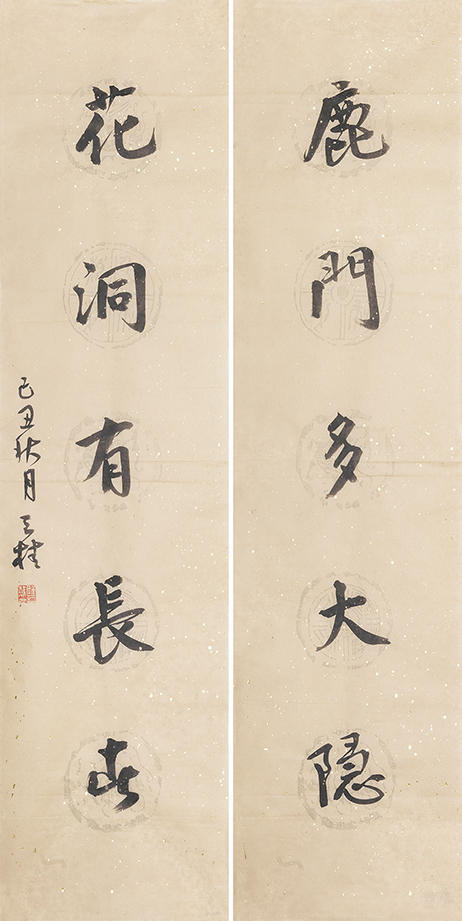 鹿門多大隐
花洞有長春
己丑秋月